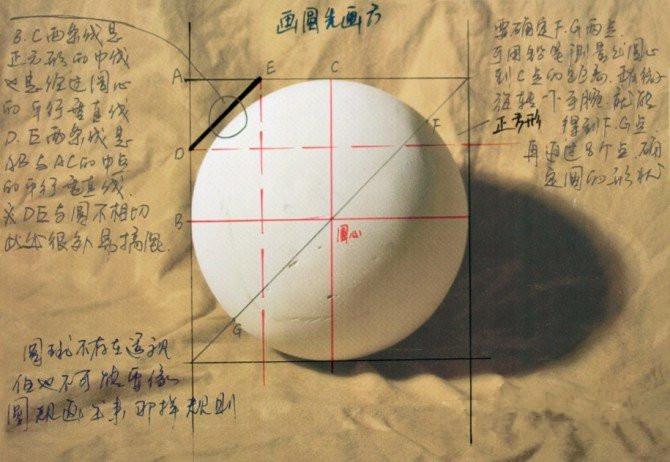 画圆先画方
B.C两条线是
正方形的中线
也是经过圆心
的平行垂直线
D.E两条线是
AB与AC的中点
的平行垂直线.
※DE与圆不相切
此处很容易搞混.
A
E
C
D
F
B
圆心
G
要确定F.G两点.
可用铅笔测量出圆心
到C点的距离.
旋转一下手腕就能
正方形
得到F.G点
再通过8个点确
定圆的形状
圆球不存在透视
但也不可能画像
圆规画出来那样规则